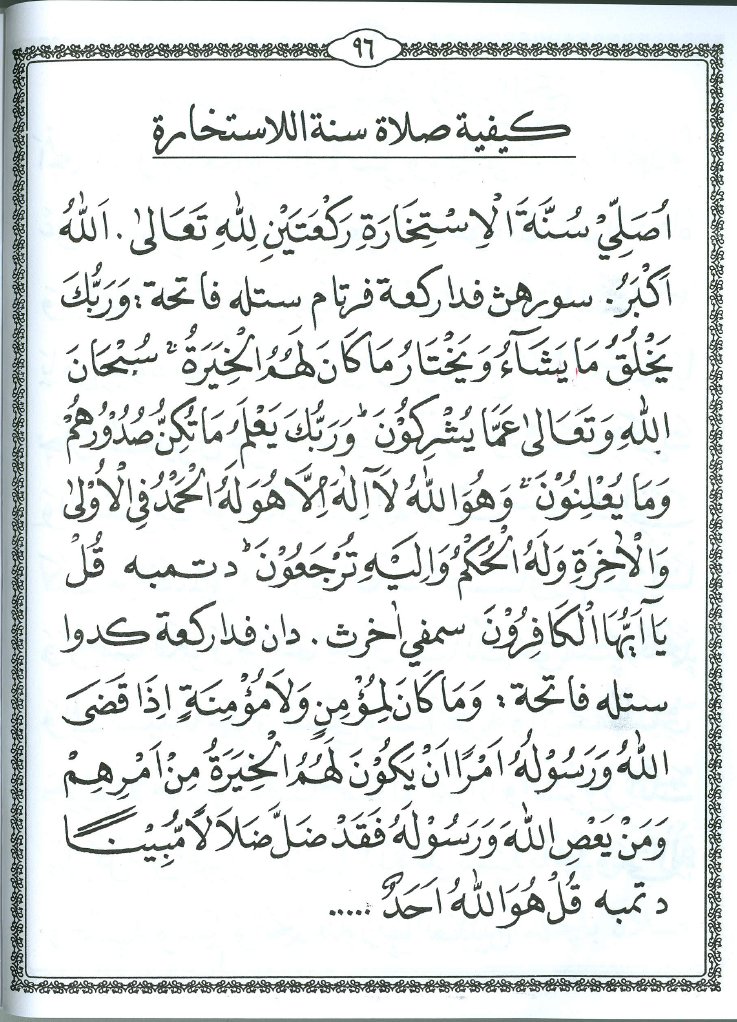 ٩٦
كيفية صلاة سنة اللاستخارة
اُصَلِّيْ سُنَّةَ الْاِسْتِخَارَةِ رَكْعَتَيْنِ لِلّٰهِ تَعَالىٰ . اَللّٰهُ
اَكْبَرُ . سورهن فدا ركعة فرتام ستله فاتحة : وَرَبُّكَ
يَخْلُقُ مَا يَشَآءُ وَيَخْتَارُ مَا كَانَ لَهُمُ الْخِيَرَةُ ۗ سُبْحَانَ
اللّٰهِ وَتَعَالىٰ عَمَّا يُشْرِكُوْنَ ، وَرَبُّكَ يَعْلَمُ مَا تُكِنُّ صُدُوْرُهُمْ
وَمَا يُعْلِنُوْنَ ۗ وَهُوَ اللّٰهُ لَآ اِلٰهَ اِلَّا هُوَ لَهُ الْحَمْدُ فِي الْاُوْلىٰ
وَالْاٰخِرَةِ وَلَهُ الْحُكْمُ وَاِلَيْهِ تُرْجَعُوْنَ ، دتمبه قُلْ
يَآ اَيُّهَا الْكَافِرُوْنَ سمفي اٰخرث . دان فدا ركعة كدوا
ستله فاتحة : وَمَا كَانَ لِمُؤْمِنٍ وَلَا مُؤْمِنَةٍ اِذَا قَضَى
اللّٰهُ وَرَسُوْلُهُ اَمْرًا اَنْ يَكُوْنَ لَهُمُ الْخِيَرَةُ مِنْ اَمْرِهِمْ
وَمَنْ يَعْصِ اللّٰهَ وَرَسُوْلَهُ فَقَدْ ضَلَّ ضَلَالًا مُّبِيْنًا
دتمبه قُلْ هُوَ اللّٰهُ اَحَدٌ .....